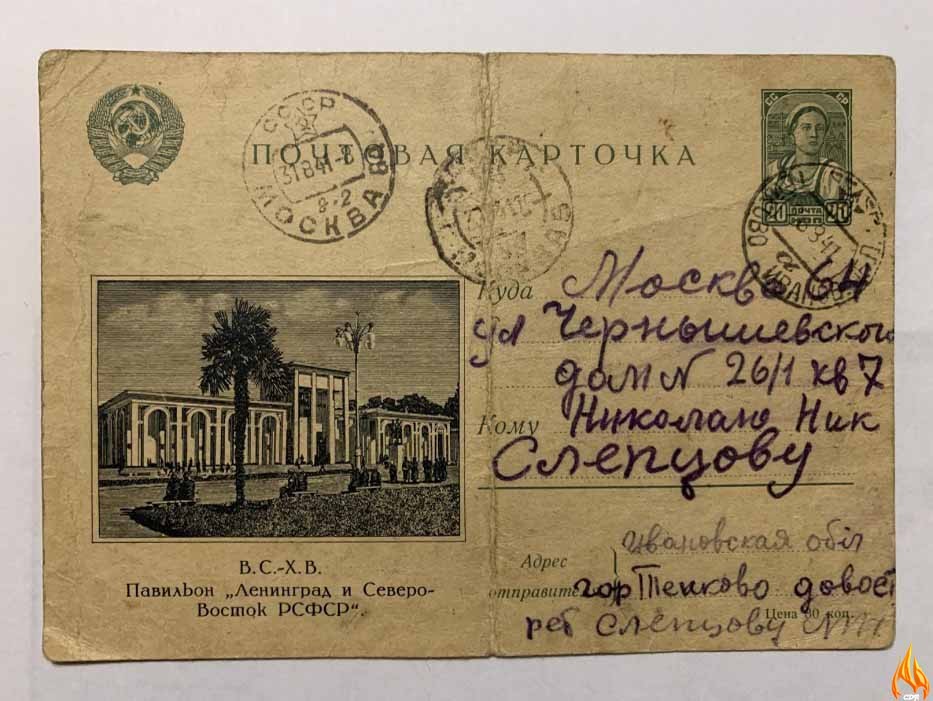 ПОЧТОВАЯ КАРТОЧКА
СССР
31841-8
8-2
МОСКВА
СС СР
20 ПОЧТА 20
Куда Москва 64
ул Чернышевского
дом N 26/1 кв 7
Кому Николаю Ник
Слепцову
В.С.-Х.В.
Павильон „Ленинград и Северо-
Восток РСФСР“.
Адрес
отправителя
Ивановская обл
гор Тейково довост
Цена 30 коп.
реб Слепцову